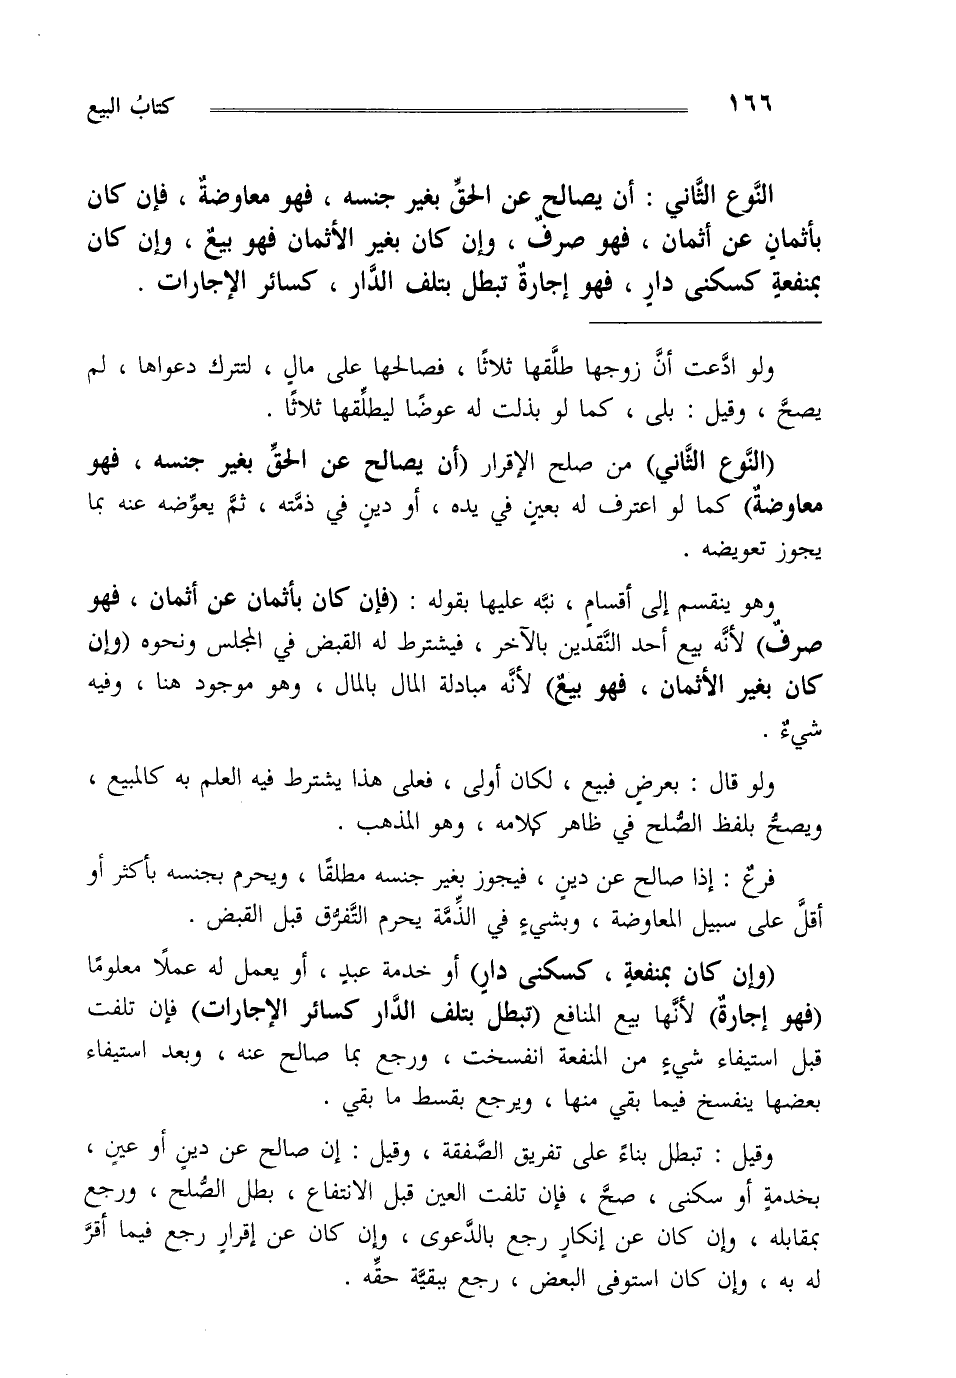 ١٦٦ كتابُ البيع
النَّوع الثَّاني : أن يصالح عن الحقِّ بغير جنسه ، فهو معاوضةٌ ، فإن كان
بأثمانٍ عن أثمان ، فهو صرفٌ ، وإن كان بغير الأثمان فهو بيعٌ ، وإن كان
بمنفعةٍ كسكنى دارٍ ، فهو إجارةٌ تبطل بتلف الدَّار ، كسائر الإجارات .
ولو ادَّعت أنَّ زوجها طلَّقها ثلاثًا ، فصالحها على مالٍ ، لتترك دعواها ، لم
يصحَّ ، وقيل : بلى ، كما لو بذلت له عوضًا ليطلِّقها ثلاثًا .
(النَّوع الثَّاني) من صلح الإقرار (أن يصالح عن الحقِّ بغير جنسه ، فهو
معاوضةٌ) كما لو اعترف له بعينٍ في يده ، أو دينٍ في ذمَّته ، ثمَّ يعوِّضه عنه بما
يجوز تعويضه .
وهو ينقسم إلى أقسامٍ ، نبَّه عليها بقوله : (فإن كان بأثمان عن أثمان ، فهو
صرفٌ) لأنَّه بيع أحد النَّقدين بالآخر ، فيشترط له القبض في المجلس ونحوه (وإن
كان بغير الأثمان ، فهو بيعٌ) لأنَّه مبادلة المال بالمال ، وهو موجود هنا ، وفيه
شيءٌ .
ولو قال : بعرضٍ فبيع ، لكان أولى ، فعلى هذا يشترط فيه العلم به كالمبيع ،
ويصحُّ بلفظ الصُّلح في ظاهر كلامه ، وهو المذهب .
فرعٌ : إذا صالح عن دينٍ ، فيجوز بغير جنسه مطلقًا ، ويحرم بجنسه بأكثر أو
أقلَّ على سبيل المعاوضة ، وبشيءٍ في الذِّمَّة يحرم التَّفرُّق قبل القبض .
(وإن كان بمنفعةٍ ، كسكنى دارٍ) أو خدمة عبدٍ ، أو يعمل له عملًا معلومًا
(فهو إجارةٌ) لأنَّها بيع المنافع (تبطل بتلف الدَّار كسائر الإجارات) فإن تلفت
قبل استيفاء شيءٍ من المنفعة انفسخت ، ورجع بما صالح عنه ، وبعد استيفاء
بعضها ينفسخ فيما بقي منها ، ويرجع بقسط ما بقي .
وقيل : تبطل بناءً على تفريق الصَّفقة ، وقيل : إن صالح عن دينٍ أو عينٍ ،
بخدمةٍ أو سكنى ، صحَّ ، فإن تلفت العين قبل الانتفاع ، بطل الصُّلح ، ورجع
بمقابله ، وإن كان عن إنكارٍ رجع بالدَّعوى ، وإن كان عن إقرارٍ رجع فيما أقرَّ
له به ، وإن كان استوفى البعض ، رجع ببقيَّة حقِّه .